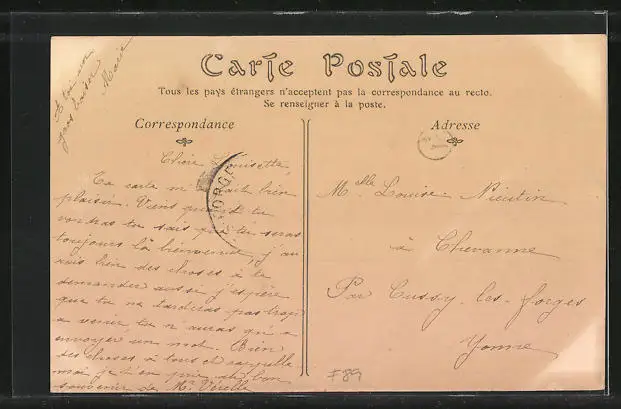 Carte Postale
Tous les pays étrangers n'acceptent pas la correspondance au recto.
Se renseigner à la poste.
Correspondance
Adresse
A toi un
gros baiser
Marie
Chère Louisette,
Ta carte m'a fait bien
plaisir. Viens quand tu
voudras tu sais que tu seras
toujours la bienvenue, j'au
rais bien des choses à te
demander aussi j'espère
que tu ne tarderas pas trop
a venir tu n'auras qu'a
envoyer un mot. Bien
des choses à tous et rappelle
moi je t'en prie au bon
souvenir de Mr
Melle Louise
à Chevanne
Par Cussy-les-forges
Yonne
FORGE
F89